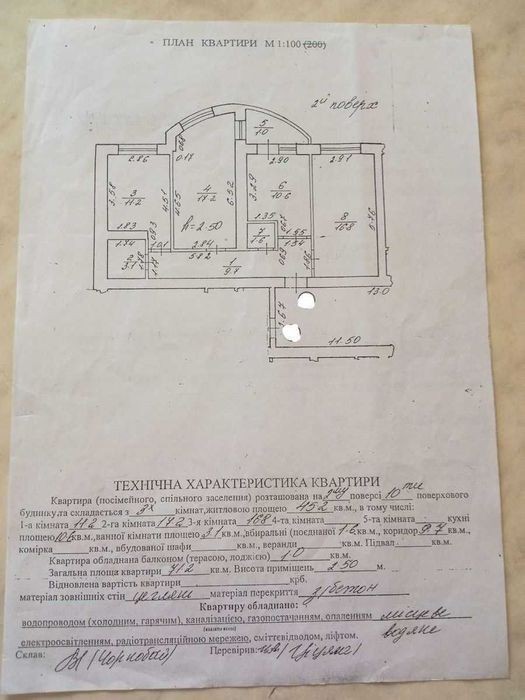 ПЛАН КВАРТИРИ М 1:100 (200)
2й поверх
5
1.0
2.86
0.17
2.90
2.91
3.58
3
11.2
4.51
4.65
4
17.2
6.52
3.29
6
10.6
8
16.8
5.76
1.83
h=2.50
2.35
7
1.6
1.55
1.54
1.74
2
3.1
1.17
2.84
5.82
1
9.7
13.0
1.67
11.50
ТЕХНІЧНА ХАРАКТЕРИСТИКА КВАРТИРИ
Квартира (посімейного, спільного заселення) розташована на 2му поверсі 10ти поверхового
будинку,та складається з 3х кімнат,житловою площею 45.2 кв.м., в тому числі:
1-а кімната 11.2 2-га кімната 17.2 3-я кімната 16.8 4-та кімната 5-та кімната кухні
площею 10.6 кв.м., ванної кімнати площею 3.1 кв.м.,вбиральні (поєднаної 1.6 кв.м., коридор 9.7 кв.м.,
комірка кв.м., вбудованої шафи кв.м., веранди кв.м. Підвал кв.м.
Квартира обладнана балконом (терасою, лоджією) 1.0 кв.м.
Загальна площа квартири 71.2 кв.м. Висота приміщень 2.50 м.
Відновлена вартість квартири крб.
матеріал зовнішніх стін цегляні матеріал перекриття з/бетон
Квартиру обладнано:
водопроводом (холодним, гарячим), каналізацією, газопостачанням, опаленням місцеве
водяне
електроосвітленням, радіотрансляційною мережею, сміттєвідводом, ліфтом.
Склав: (Чорнобай) Перевірив: